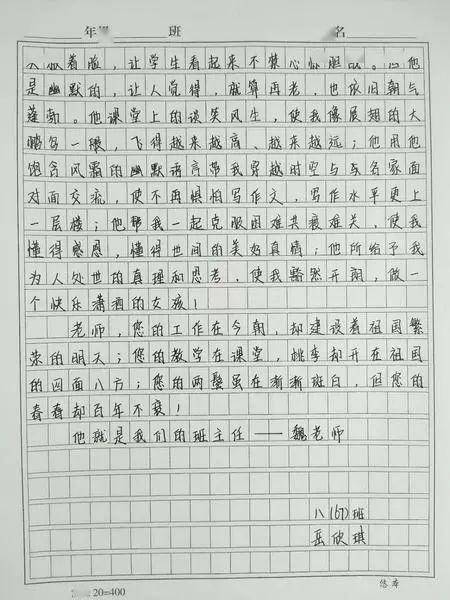 年 班 名
着脸，让学生看起来不禁心惊胆战。但他
是幽默的，让人觉得，就算再老，也依旧朝气
蓬勃。他课堂上的谈笑风生，使我像展翅的大
鹏鸟一般，飞得越来越高、越来越远；他用他
饱含风霜的幽默语言带我穿越时空与东名家面
对面交流，使不再惧怕写作文，写作水平更上
一层楼；他帮我一起克服困难共衰难关，使我
懂得感恩，懂得世间的美好真情；他所给予我
为人处世的真理和思考，使我豁然开朗，做一
个快乐潇洒的女孩！
老师，您的工作在今朝，却建设着祖国繁
荣的明天；您的教学在课堂，桃李却开在祖国
的四面八方；您的两鬓虽在渐渐斑白，但您的
青春却百年不衰！
他就是我们的班主任——魏老师
八(67)班
岳欣琪
20=400